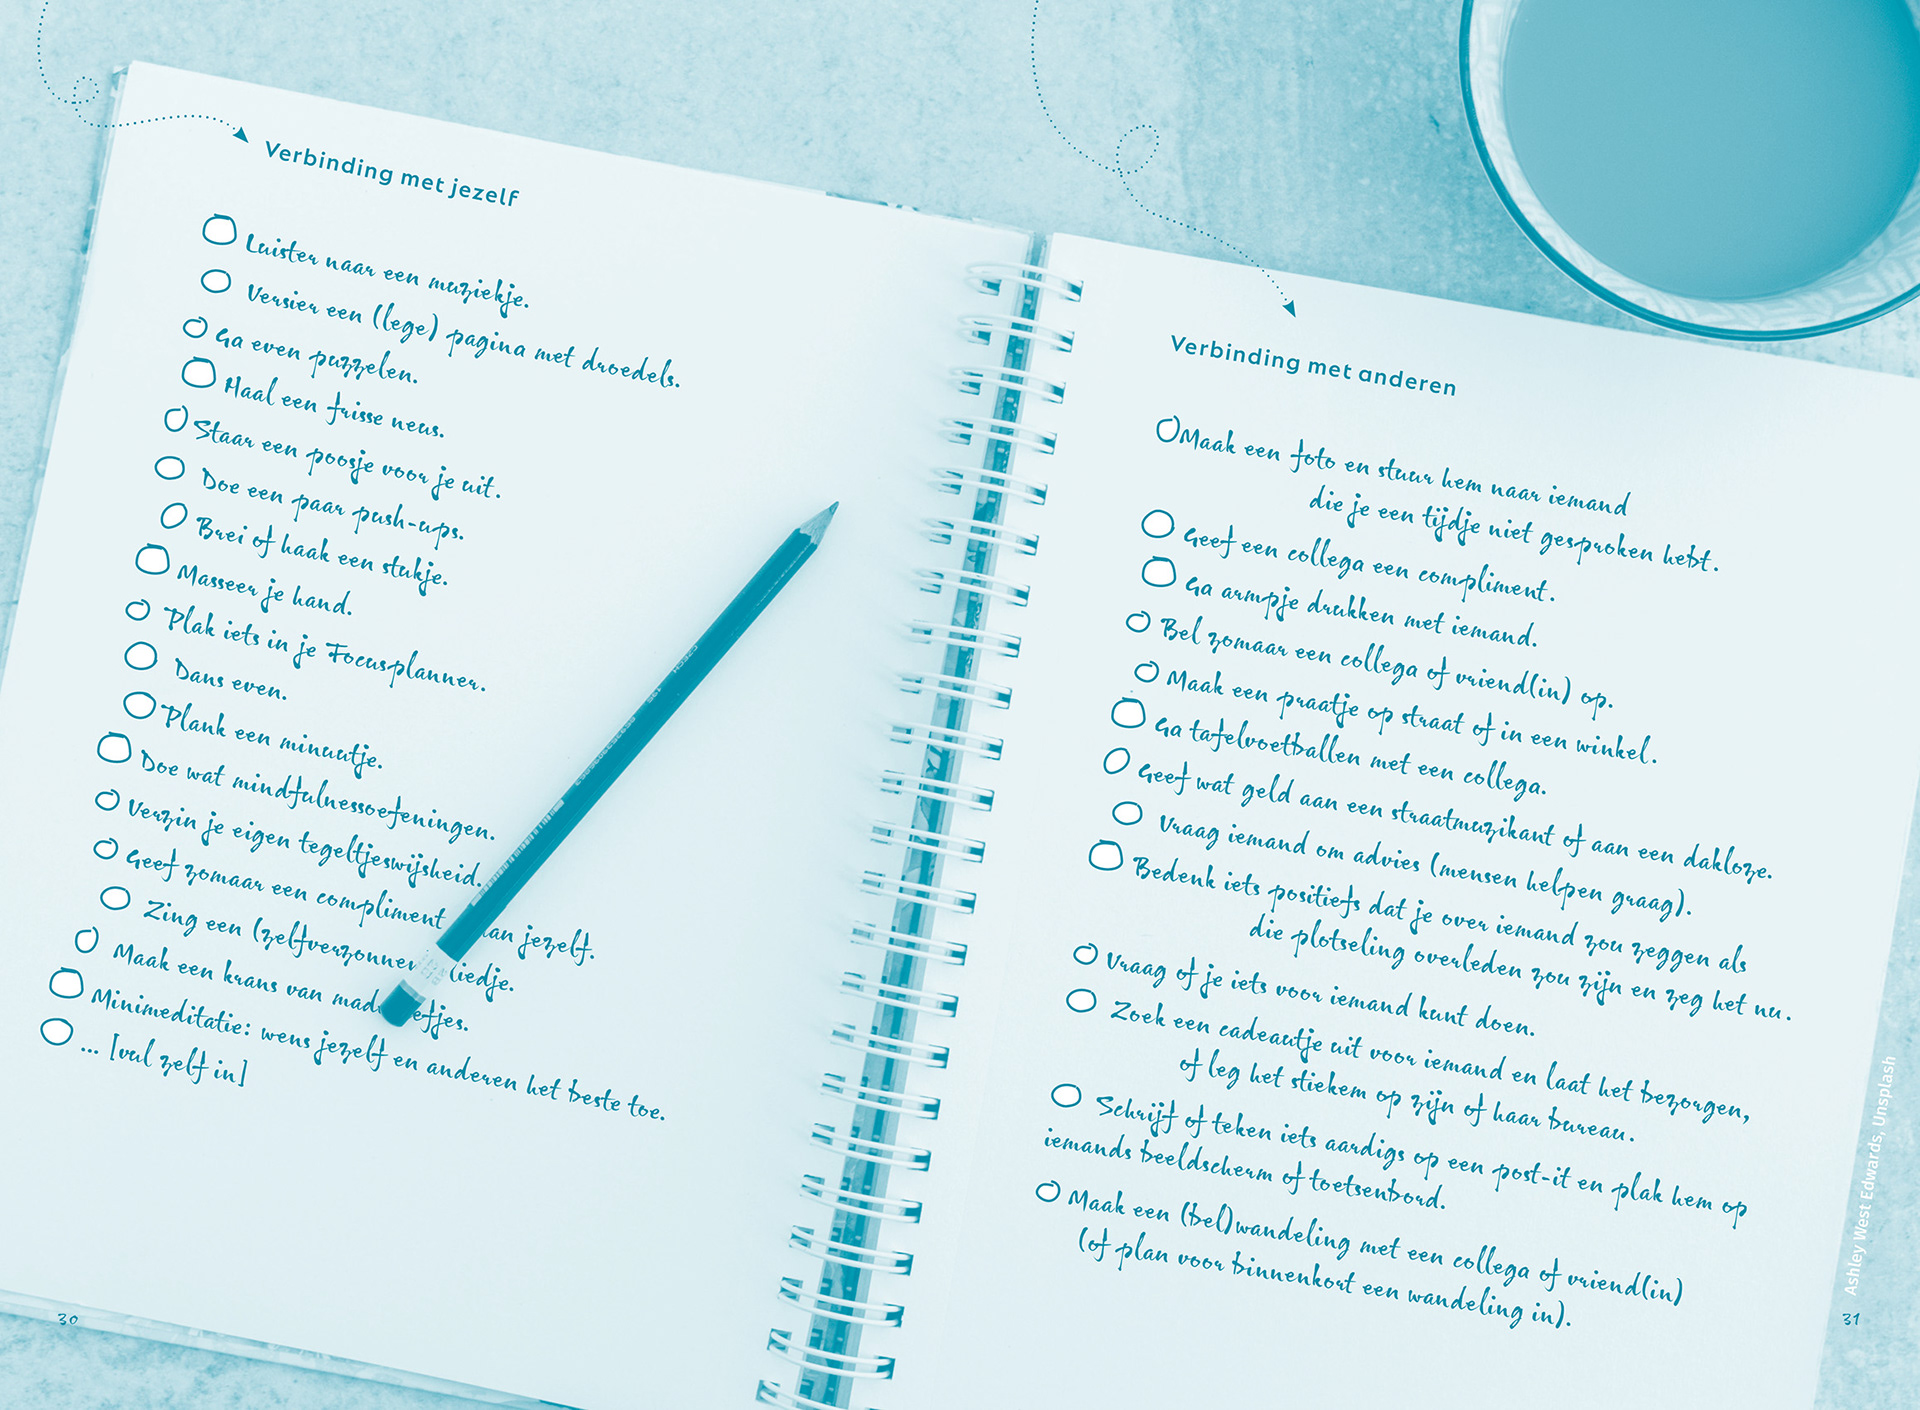 Verbinding met jezelf
Luister naar een muziekje.
Versier een (lege) pagina met droedels.
Ga even puzzelen.
Haal een frisse neus.
Staar een poosje voor je uit.
Doe een paar push-ups.
Brei of haak een stukje.
Masseer je hand.
Plak iets in je Focusplanner.
Dans even.
Plank een minuutje.
Doe wat mindfulnessoefeningen.
Verzin je eigen tegeltjeswijsheid.
Geef zomaar een compliment aan jezelf.
Zing een (zelfverzonnen) liedje.
Maak een krans van madeliefjes.
Minimeditatie: wens jezelf en anderen het beste toe.
... [vul zelf in]
30
Verbinding met anderen
Maak een foto en stuur hem naar iemand
die je een tijdje niet gesproken hebt.
Geef een collega een compliment.
Ga armpje drukken met iemand.
Bel zomaar een collega of vriend(in) op.
Maak een praatje op straat of in een winkel.
Ga tafelvoetballen met een collega.
Geef wat geld aan een straatmuzikant of aan een dakloze.
Vraag iemand om advies (mensen helpen graag).
Bedenk iets positiefs dat je over iemand zou zeggen als
die plotseling overleden zou zijn en zeg het nu.
Vraag of je iets voor iemand kunt doen.
Zoek een cadeautje uit voor iemand en laat het bezorgen,
of leg het stiekem op zijn of haar bureau.
Schrijf of teken iets aardigs op een post-it en plak hem op
iemands beeldscherm of toetsenbord.
Maak een (bel)wandeling met een collega of vriend(in)
(of plan voor binnenkort een wandeling in).
Ashley West Edwards, Unsplash
31